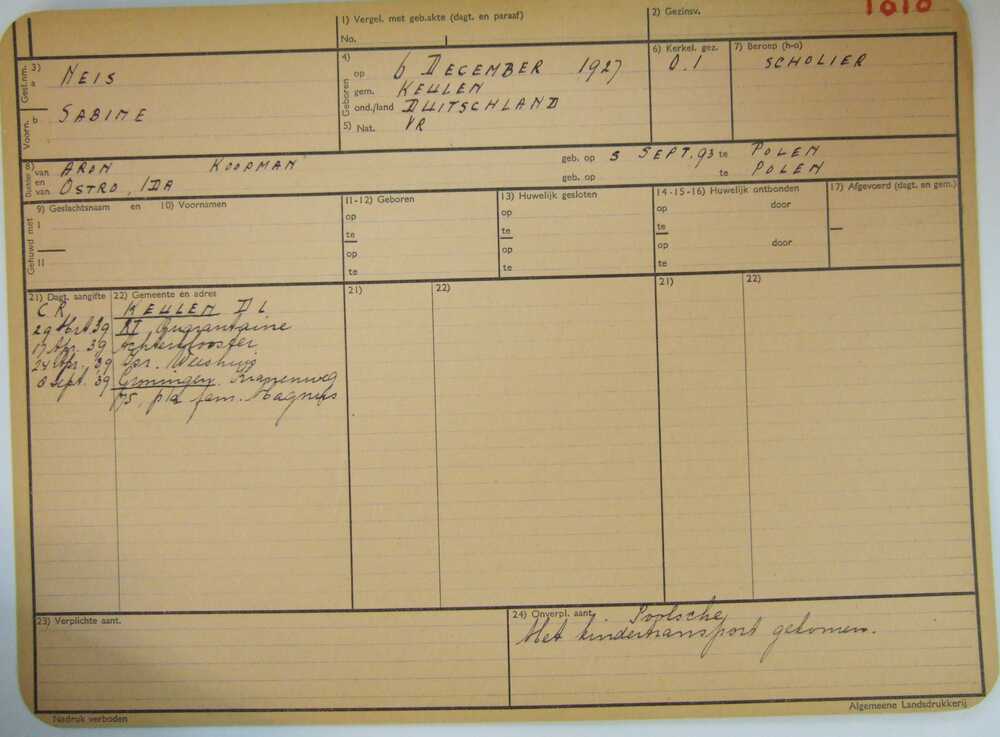 1) Vergel. met geb.akte (dagt. en paraaf)
No.
2) Gezinsv.
1010
Gesl.nm. 3) a NEIS
Voorn. b SABINE
4) Geboren
op 6 DECEMBER 1927
gem. KEULEN
ond./land DUITSCHLAND
5) Nat. VR
6) Kerkel. gez.
O.I
7) Beroep (h-o)
SCHOLIER
Ouders 8) van ARON KOOPMAN geb. op 5 SEPT. 93 te POLEN
en van OSTRO, IDA geb. op te POLEN
Gehuwd met
9) Geslachtsnaam en 10) Voornamen
I
II
11-12) Geboren
op
te
op
te
13) Huwelijk gesloten
op
te
op
te
14-15-16) Huwelijk ontbonden
op door
te
op door
te
17) Afgevoerd (dagt. en gem.)
21) Dagt. aangifte 22) Gemeente en adres 21) 22) 21) 22)
C.R. KEULEN DL.
29 Mrt 39 Quarantaine
17 Apr. 39 Achterklooster
24 Apr. 39 Isr. Weeshuis
Sept. '39 Groningen. Kranenweg
75, p/a fam. Magnus
23) Verplichte aant.
24) Onverpl. aant. Poolsche
Met kindertransport gekomen.
Nadruk verboden
Algemene Landsdrukkerij